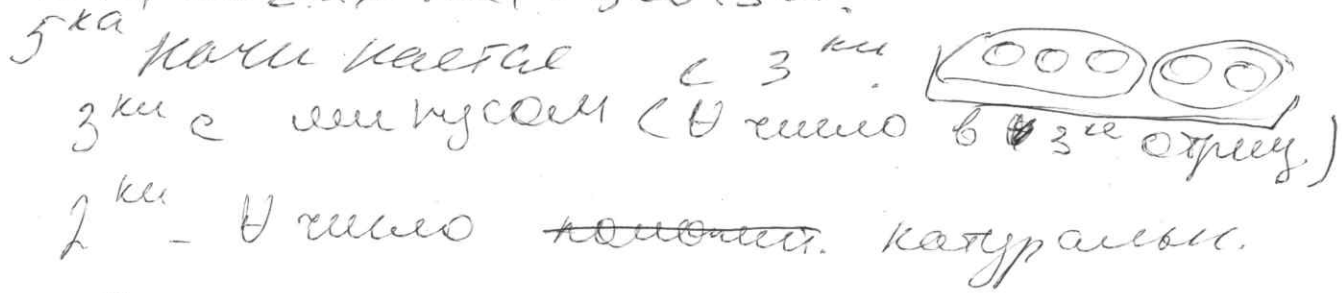 5ка начинается с 3ки.
3ки с минусом (∀ число в 3ке отриц.)
2ки - ∀ число положит. натуральн.